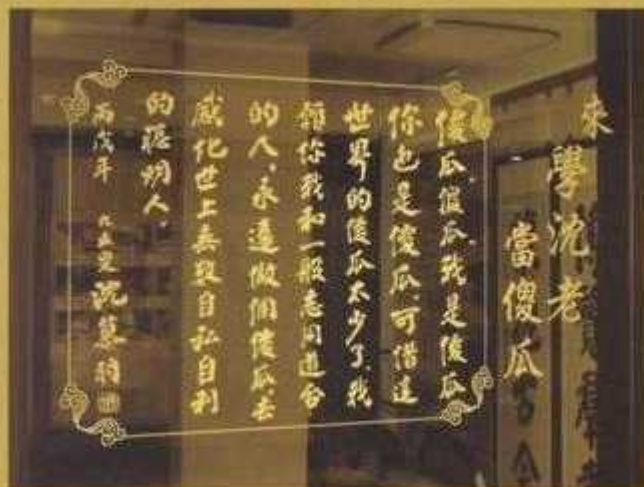 來學沈老
當傻瓜
傻瓜,傻瓜,我是傻瓜
你也是傻瓜,可惜這
世界的傻瓜太少了,我
願你我和一般志同道合
的人,永遠做個傻瓜,去
感化世上無數自私自利
的聰明人.
丙戌年 九五叟沈慕羽